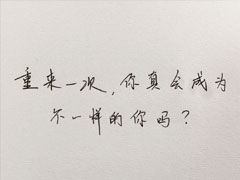 重来一次，你真会成为
不一样的你吗？